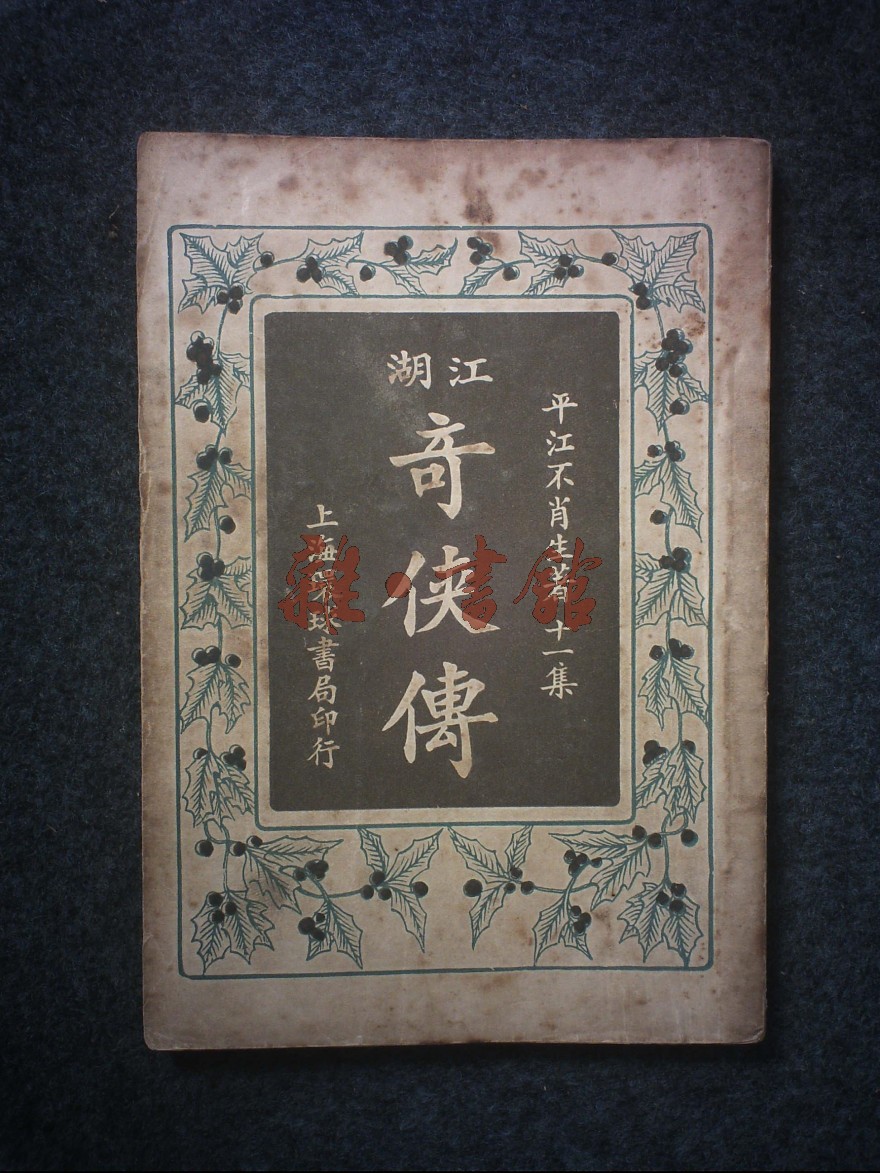 江湖
奇俠傳
平江不肖生著 十一集
上海環球書局印行
雜·書館